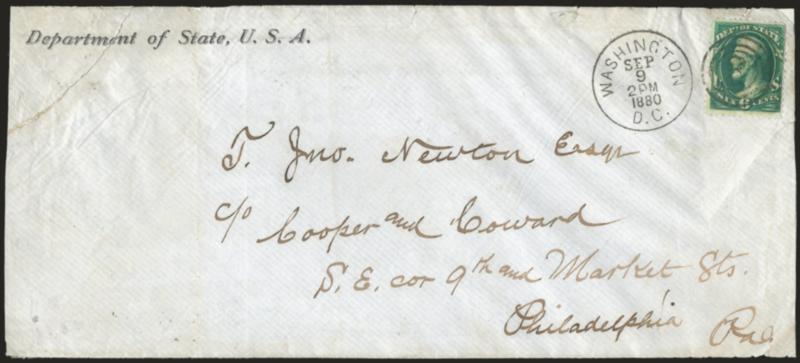 Department of State, U. S. A.
WASHINGTON
SEP
9
2PM
1880
D.C.
DEPT. OF STATE
SIX CENTS
T. Jno. Newton Esqr
c/o Cooper and Coward
S. E. cor 9th and Market Sts.
Philadelphia Pa